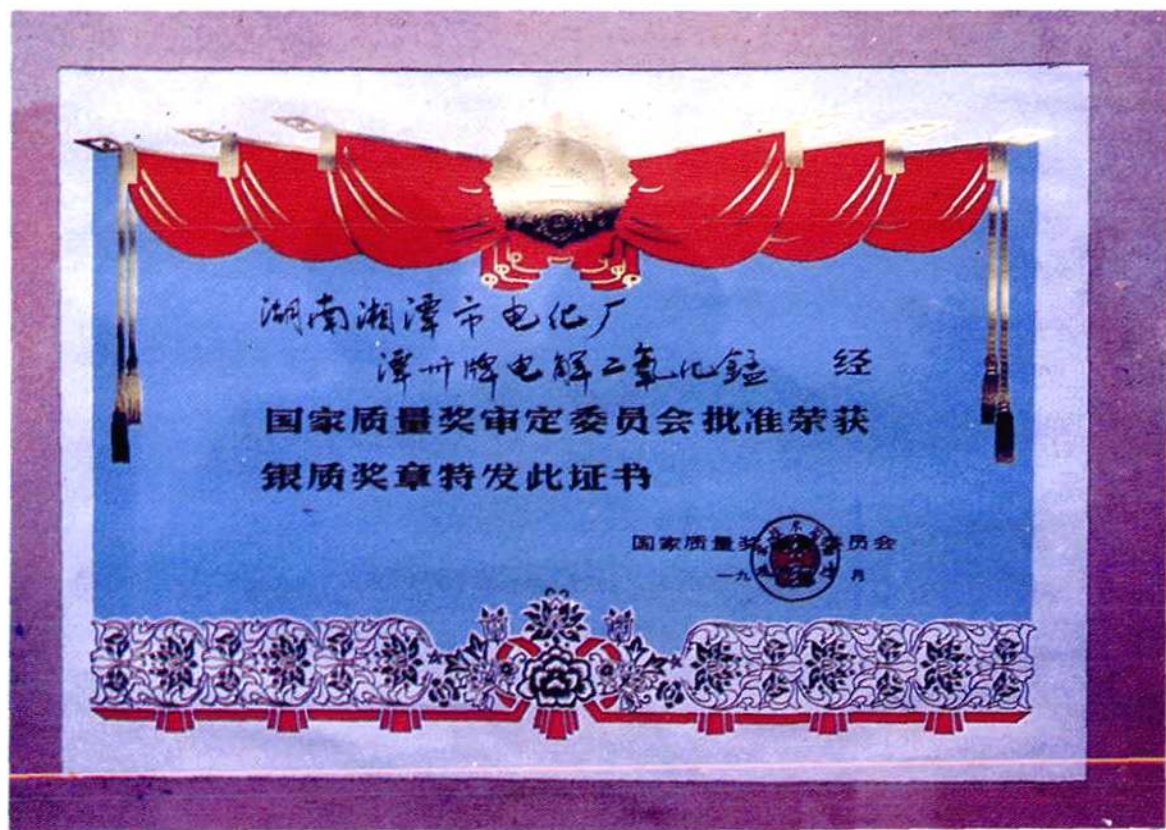 湖南湘潭市电化厂
潭州牌电解二氧化锰 经
国家质量奖审定委员会批准荣获
银质奖章特发此证书
国家质量奖 委员会
一九 月